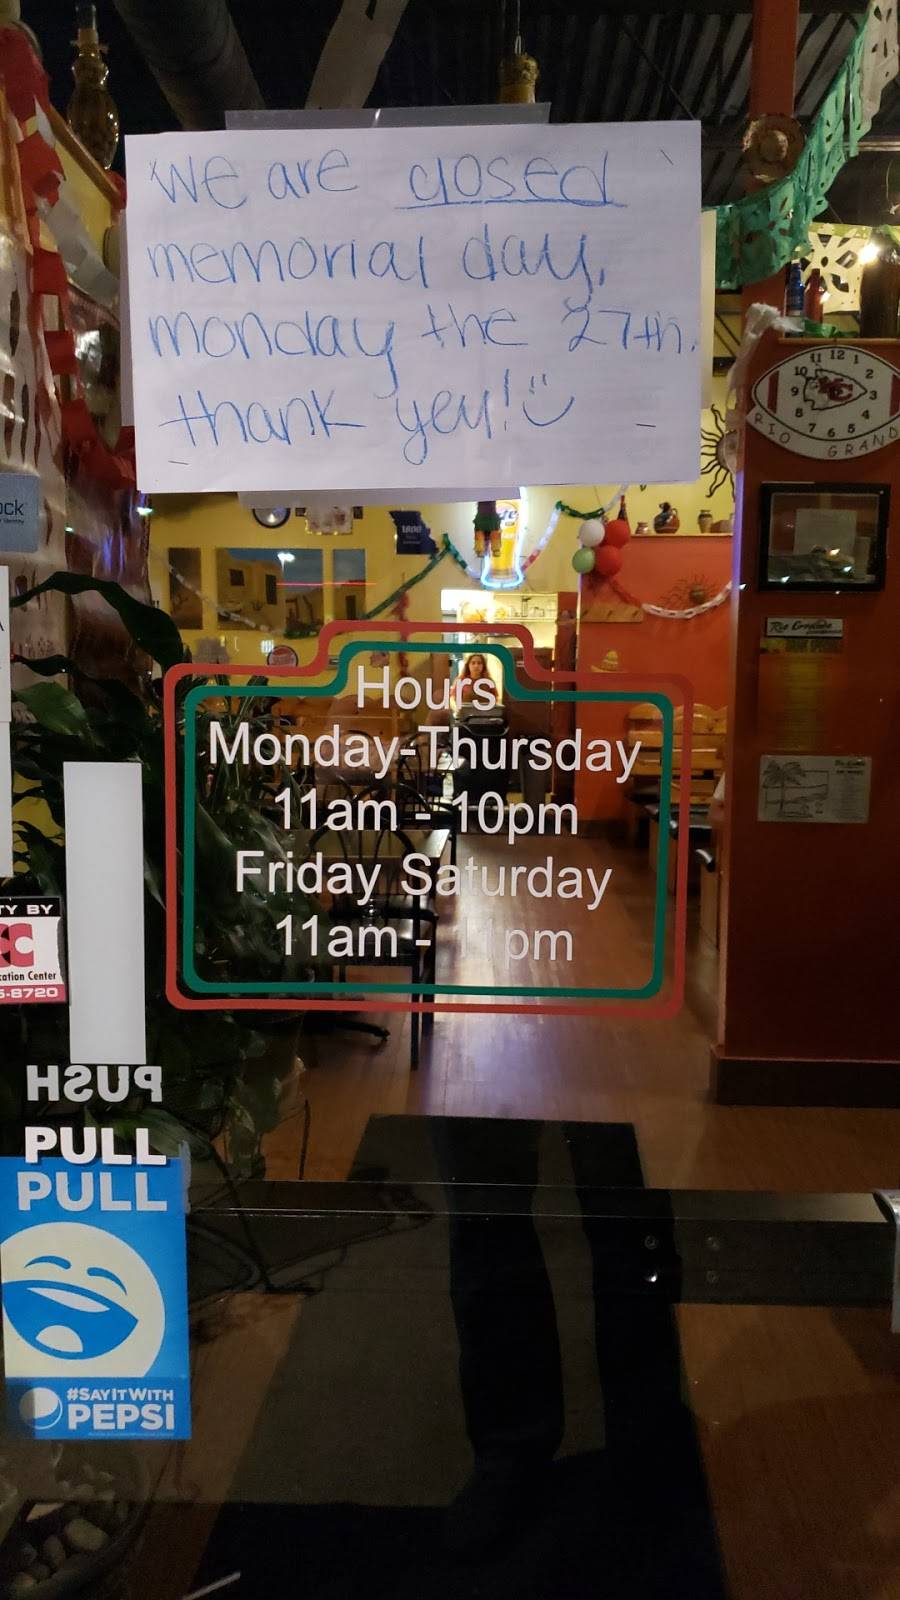 We are closed
memorial day,
monday the 27th.
thank you!
ock
11 12 1
10 2
9 3
8 4
7 6 5
KC
RIO GRAND
Rio Grande
Hours
Monday-Thursday
11am - 10pm
Friday Saturday
11am - 11pm
TY BY
CC
cation Center
5-8720
PUSH
PULL
PULL
#SAYITWITH
PEPSI